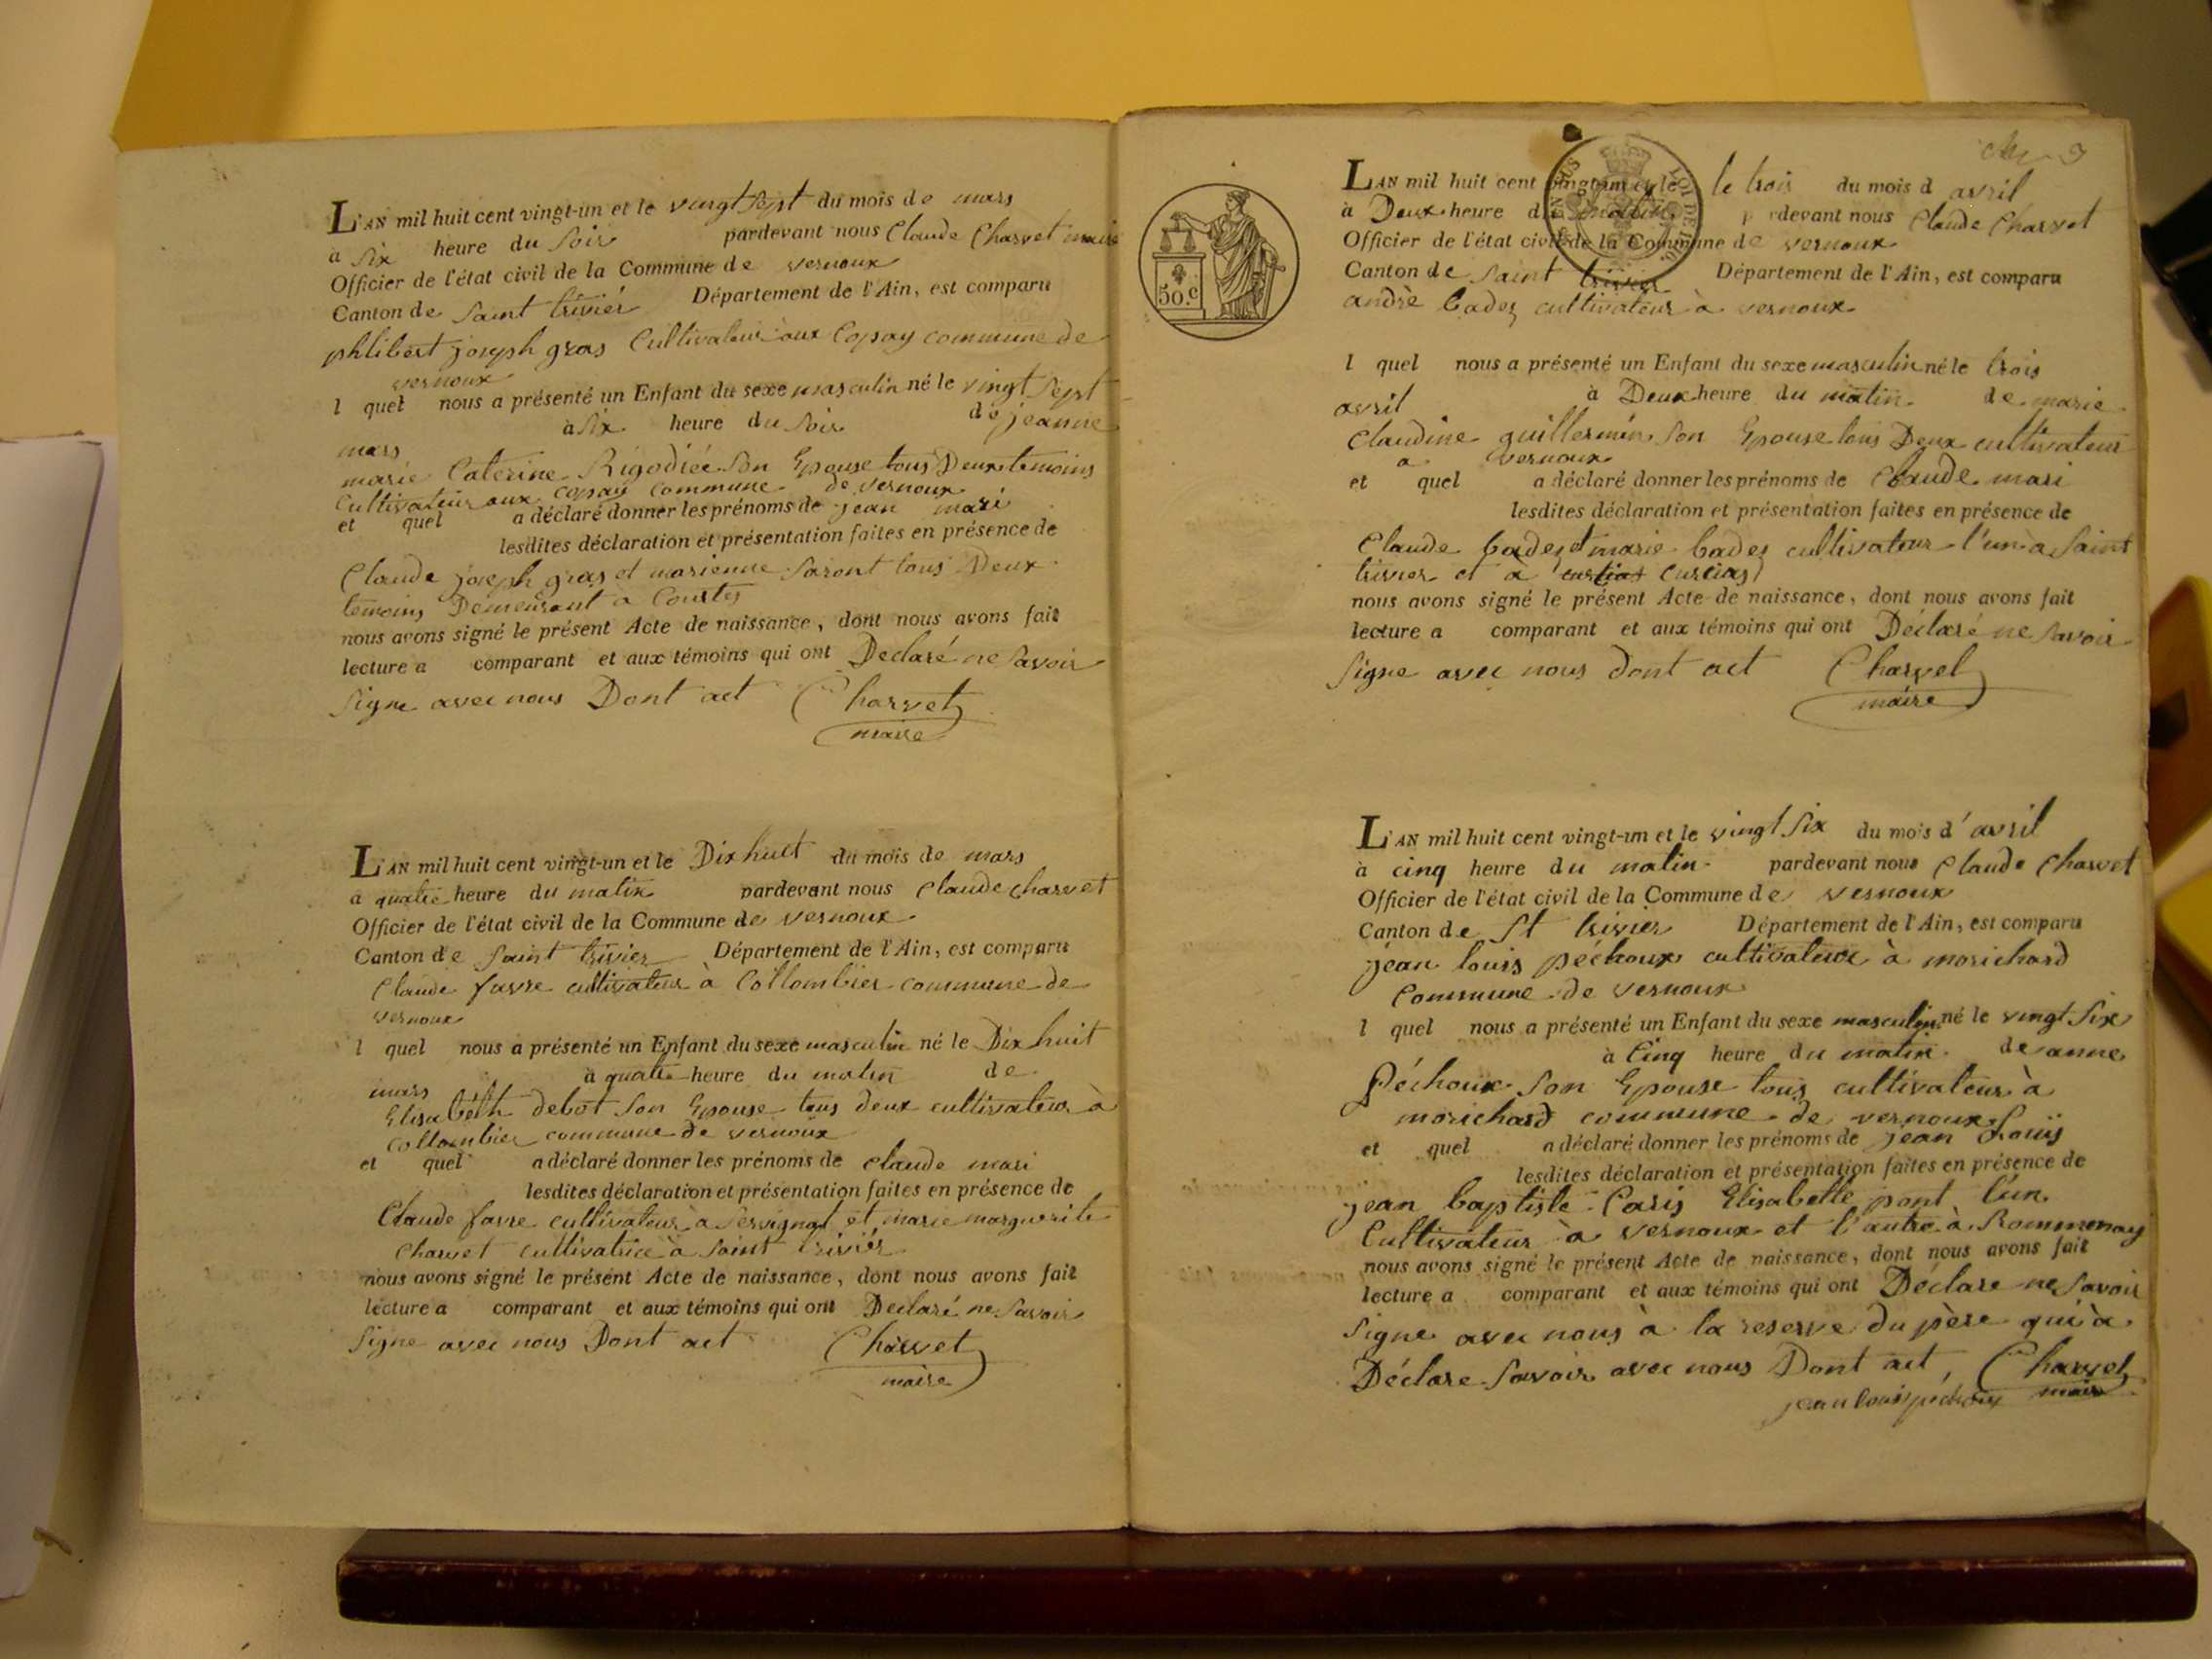 L'AN mil huit cent vingt-un et le vingt sept du mois de mars
à six heure du soir pardevant nous Claude Charvet maire
Officier de l'état civil de la Commune de vernoux
Canton de saint trivier Département de l'Ain, est comparu
phlibert joseph gras Cultivateur aux Copay commune de
vernoux
l quel nous a présenté un Enfant du sexe masculin né le vingt sept
mars à six heure du soir de jeanne
marie Caterine Rigodiée son Epouse tous Deux temoins
Cultivateur aux copay commune de vernoux
et quel a déclaré donner les prénoms de jean mari
lesdites déclaration et présentation faites en présence de
Claude joseph gras et marienne saront tous Deux
temoins Demeurant a Courtes
nous avons signé le présent Acte de naissance, dont nous avons fait
lecture a comparant et aux témoins qui ont Declaré ne savoir
signe avec nous Dont act Charvet
maire
L'AN mil huit cent vingt-un et le Dix huit du mois de mars
à quatre heure du matin pardevant nous Claude Charvet
Officier de l'état civil de la Commune de vernoux
Canton de saint trivier Département de l'Ain, est comparu
Claude favre cultivateur à Collombier commune de
vernoux
l quel nous a présenté un Enfant du sexe masculin né le Dix huit
mars à quatre heure du matin de
Elisabeth debot son Epouse tous deux cultivateur à
Collombier commune de vernoux
et quel a déclaré donner les prénoms de claude mari
lesdites déclaration et présentation faites en présence de
Claude favre cultivateur à servignat et marie marguerite
Charvet cultivatrice à saint trivier
nous avons signé le présent Acte de naissance, dont nous avons fait
lecture a comparant et aux témoins qui ont Declaré ne savoir
signe avec nous Dont act Charvet
maire
50.c
LOI DE
L'AN mil huit cent vingt-un et le le trois du mois d avril
à Deux heure du matin pardevant nous Claude Charvet
Officier de l'état civil de la Commune de vernoux
Canton de saint trivier Département de l'Ain, est comparu
andrè badez cultivateur à vernoux
l quel nous a présenté un Enfant du sexe masculin né le trois
avril à Deux heure du matin de marie
Claudine guillermin son Epouse tous Deux cultivateur
a vernoux
et quel a déclaré donner les prénoms de Claude mari
lesdites déclaration et présentation faites en présence de
Claude badez et marie badez cultivateur l'un a saint
trivier et à curcias
nous avons signé le présent Acte de naissance, dont nous avons fait
lecture a comparant et aux témoins qui ont Déclaré ne savoir
signe avec nous dont act Charvet
maire
L'AN mil huit cent vingt-un et le vingt six du mois d'avril
à cinq heure du matin pardevant nous Claude Charvet
Officier de l'état civil de la Commune de vernoux
Canton de St trivier Département de l'Ain, est comparu
jean louis péchoux cultivateur à morichard
Commune de vernoux
l quel nous a présenté un Enfant du sexe masculin né le vingt six
à Cinq heure du matin de anne
Péchoux son Epouse tous cultivateur à
morichard commune de vernoux
et quel a déclaré donner les prénoms de jean Louis
lesdites déclaration et présentation faites en présence de
jean baptiste Paris Elisabette pont l'un
Cultivateur à vernoux et l'autre à Rommenay
nous avons signé le présent Acte de naissance, dont nous avons fait
lecture a comparant et aux témoins qui ont Déclare ne savoir
signe avec nous à la reserve du père qui à
Déclare savoir avec nous Dont act, Charvet
jean louis péchoux maire